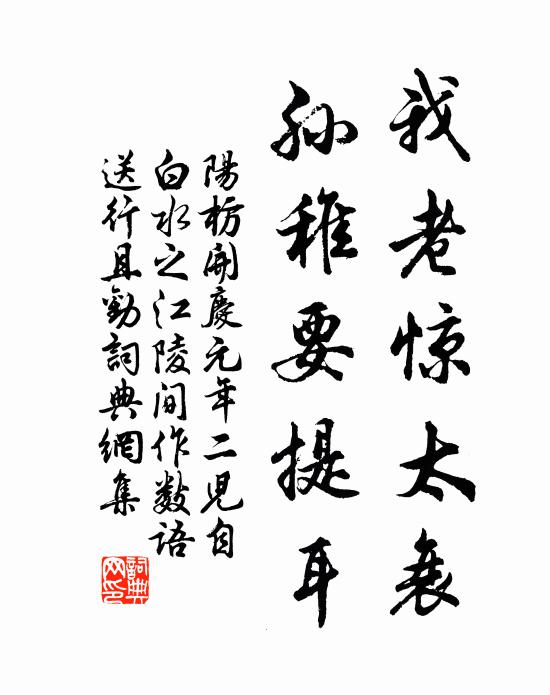 我老惊太衰
孙稚要提耳
陽枋開慶元年二児自
白水之江陵间作数语
送行且勸詞典網集
詞典网印